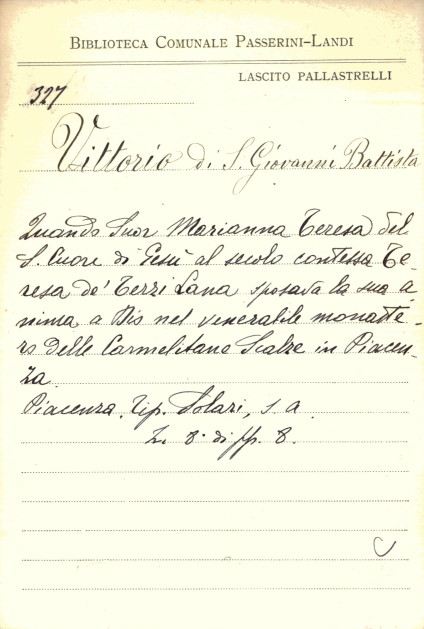 BIBLIOTECA COMUNALE PASSERINI-LANDI
LASCITO PALLASTRELLI
327
Vittorio di S. Giovanni Battista
Quando Suor Marianna Teresa del
S. Cuore di Gesù al secolo contessa Te-
resa de' Terzi Lana sposava la sua a-
nima a Dio nel venerabile monaste-
ro delle Carmelitane Scalze in Piacen-
za.
Piacenza, Tip. Solari, s. a.
8° di pp. 8.